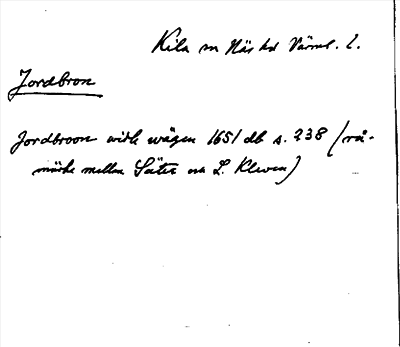 Kila sn Näs hd Värml. l.
Jordbron
Jordbroon widh wägen 1651 db s. 238 (rå-
märke mellan Säter och L. Klewen)